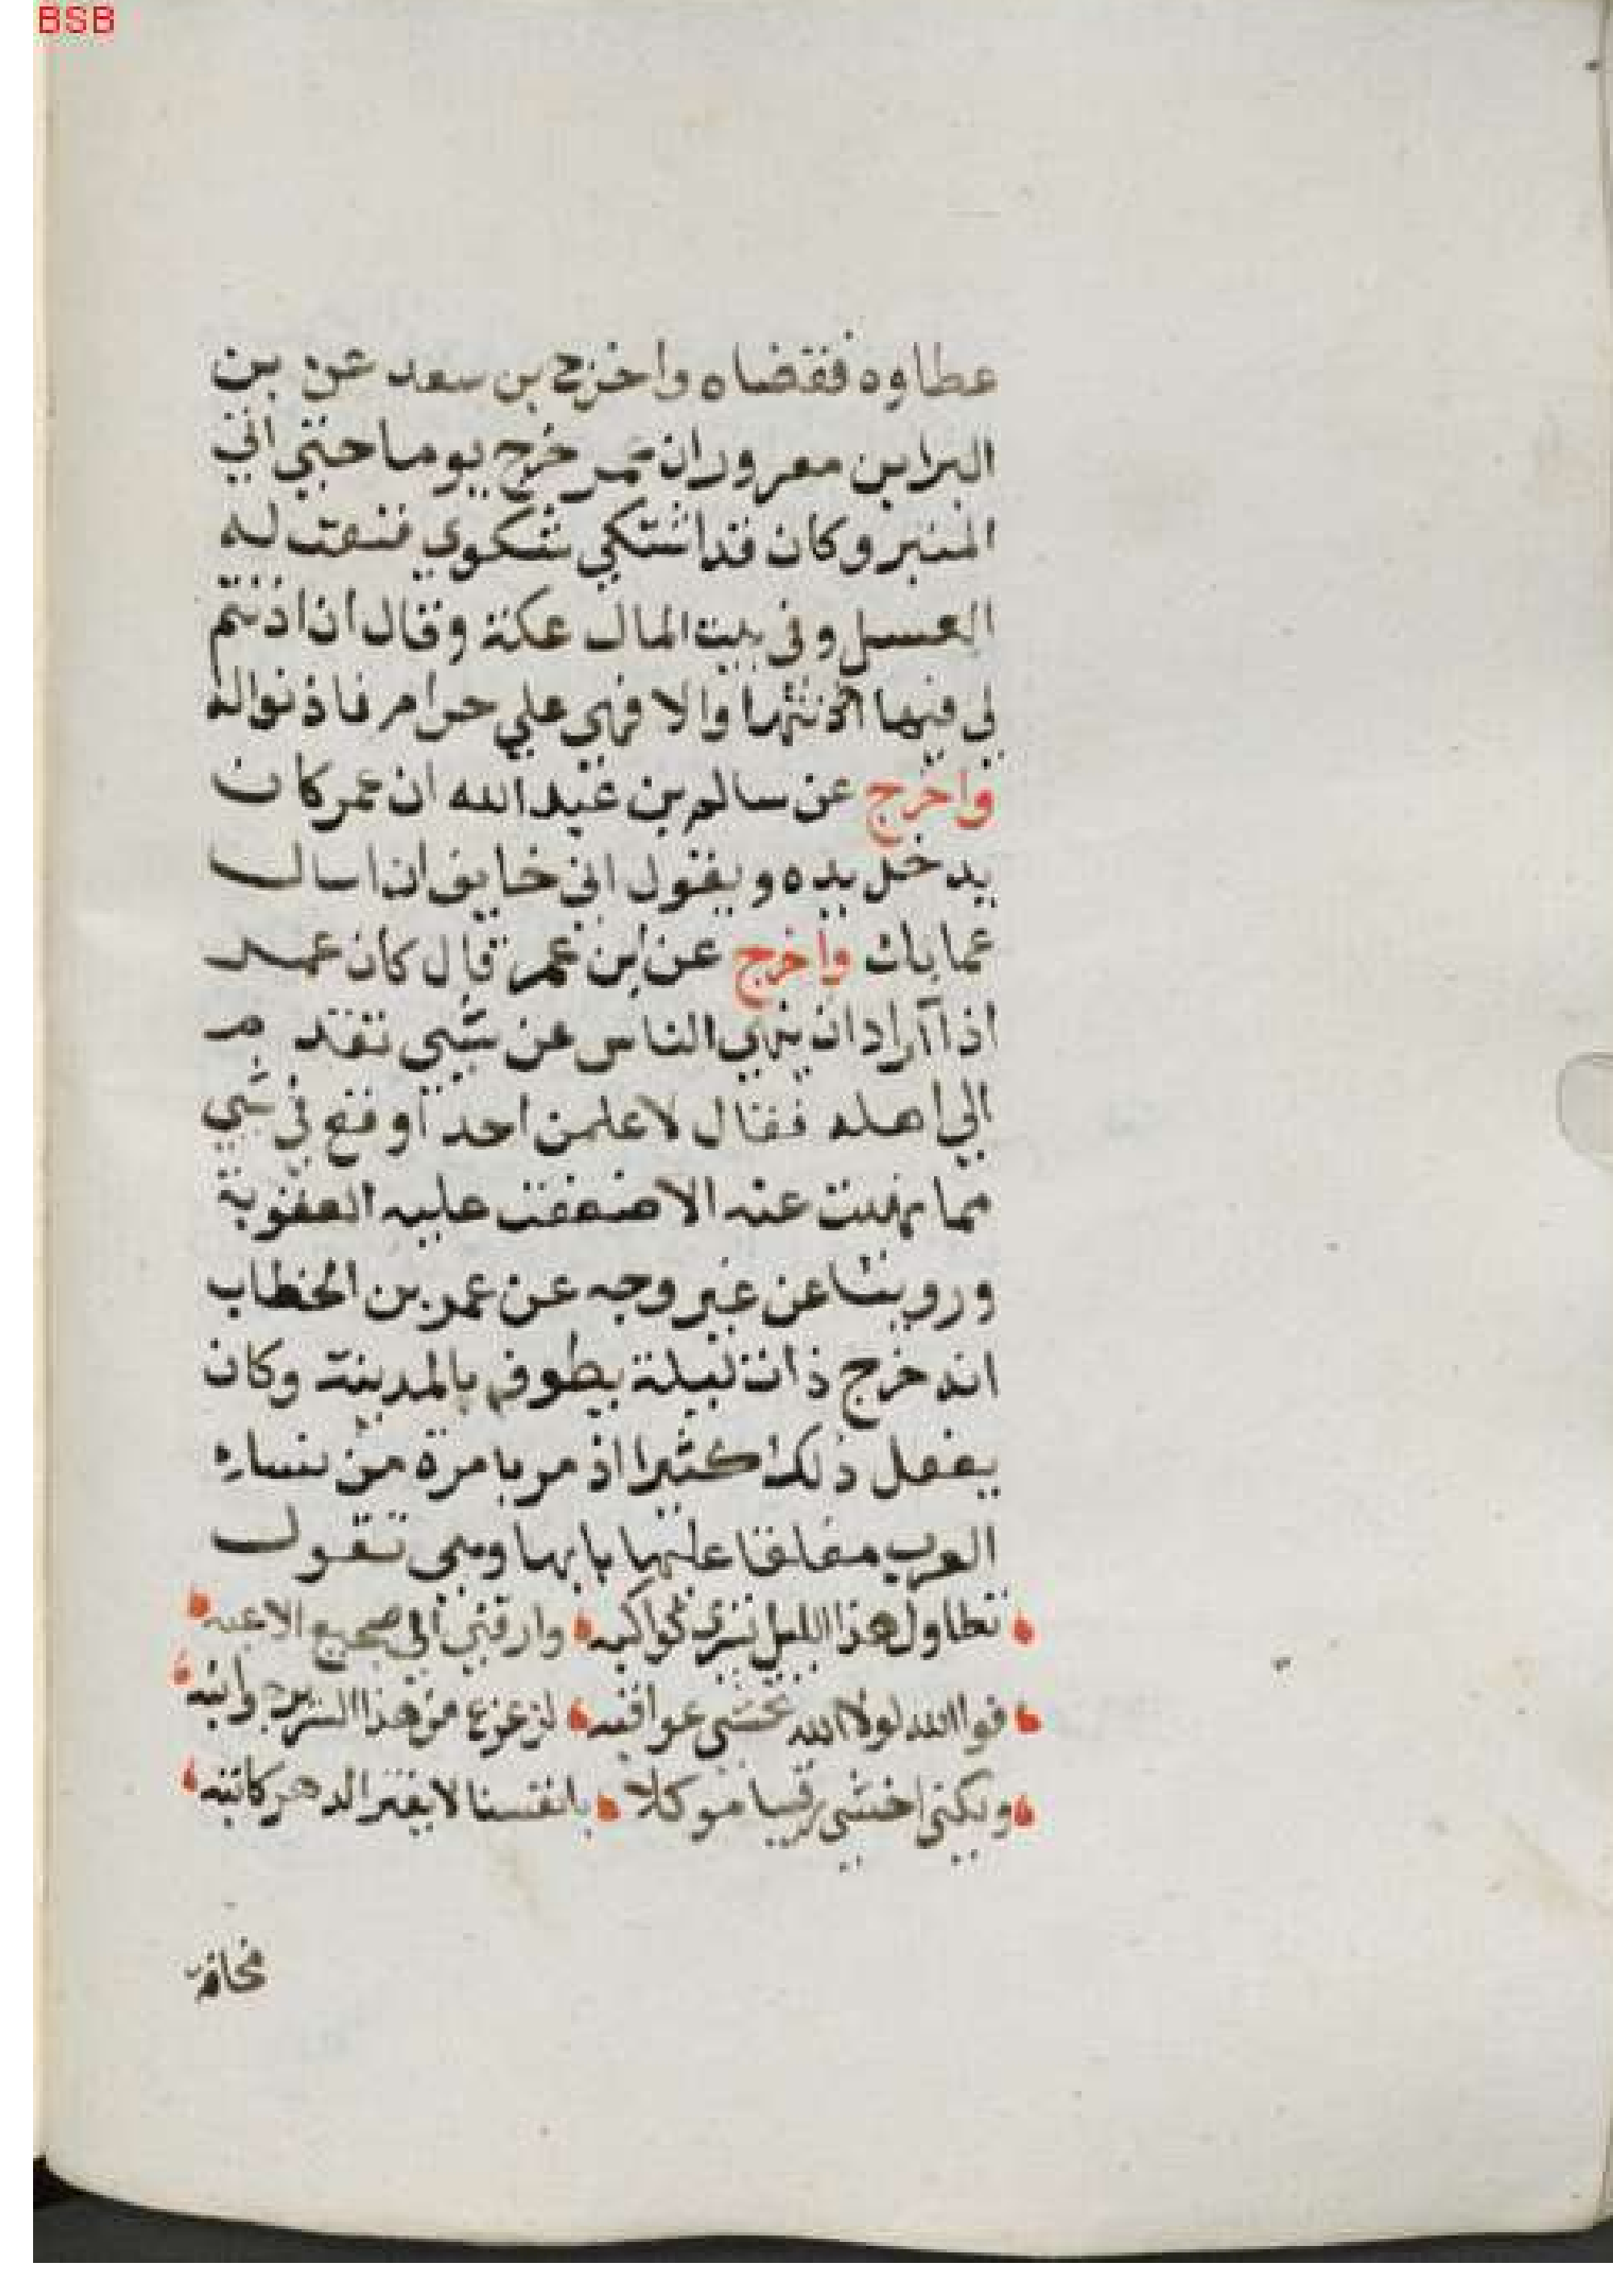 BSB
عطاوه فقضاه واخرج بن سعد عن بن
البرابن معروران عمر خرج يوما حتي اتي
المنبر وكان قد اشتكي شكوي فنعت له
العسل وفي بيت المال عكة وقال ان اذنتم
لي فيها اخذتها والا فهي علي حرام فاذنوا له
واخرج عن سالم بن عبد الله ان عمر كان
يدخل يده ويقول اني خايف ان اسال
عما بك واخرج عن ابن عمر قال كان عمر
اذا اراد ان ينهي الناس عن شيي تقدم
الي اهله فقال لا علمن احدا وقع في شيي
مما نهيت عنه الا ضعفت عليه العقوبة
وروينا عن غير وجه عن عمر بن الخطاب
انه خرج ذات ليلة يطوف بالمدينة وكان
يفعل ذلك كثيرا اذ مر بامرة من نساء
العرب مغلقا عليها بابها وهي تقول
تطاول هذا الليل تسري كواكبه وارقني الي ضجيع الاعبه
فوا الله لولا الله تخشي عواقبه لزعزع من هذا السرير جوانبه
ولكني اخشي رقيبا موكلا بانفسنا لا يفتر الدهر كاتبه
مخافة